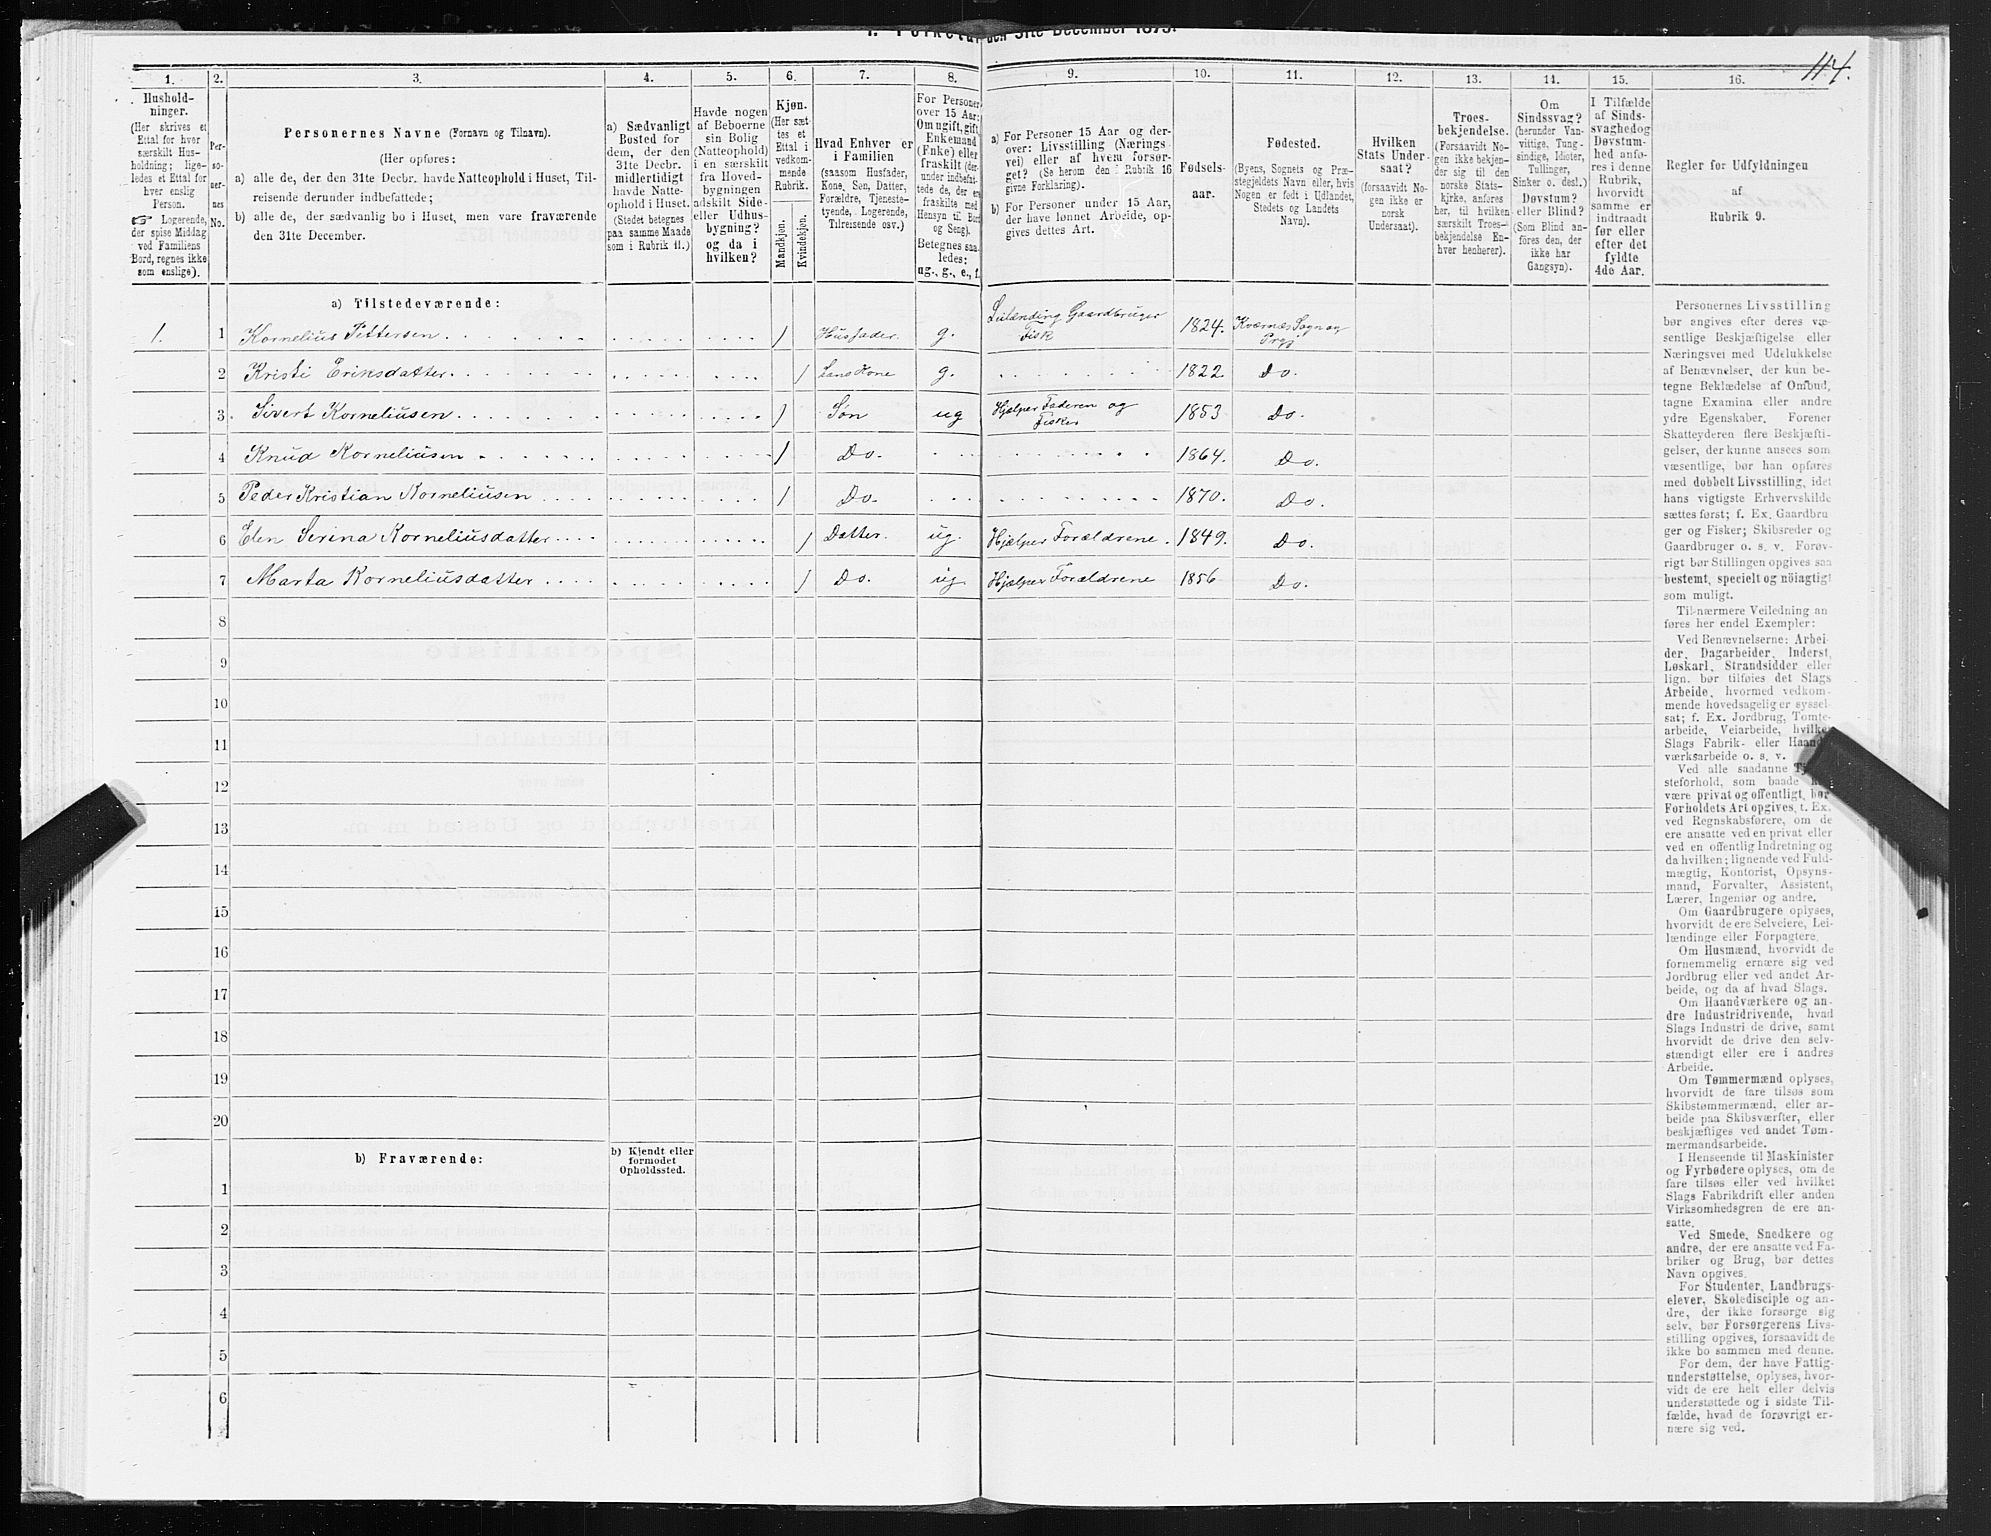 I. Folketal den 31te December 1875.
114.
1.
2.
3.
4.
5.
6.
7.
8.
9.
10.
11.
12.
13.
14.
15.
16.
Hushold-
ninger.
(Her skrives et
Ettal for hver
særskilt Hus-
holdning; lige-
ledes et Ettal for
hver enslig
Person.
☞ Logerende,
der spise Middag
ved Familiens
Bord, regnes ikke
som enslige).
Per-
so-
ner-
nes
No.
Personernes Navne (Fornavn og Tilnavn).
(Her opføres:
a) alle de, der den 31te Decbr. havde Natteophold i Huset, Til-
reisende derunder indbefattede;
b) alle de, der sædvanlig bo i Huset, men vare fraværende
den 31te December.
a) Sædvanligt
Bosted for
dem, der den
31te Decbr.
midlertidigt
havde Natte-
ophold i Huset.
(Stedet betegnes
paa samme Maade
som i Rubrik 11.)
Havde nogen
af Beboerne
sin Bolig
(Natteophold)
i en særskilt
fra Hoved-
bygningen
adskilt Side-
eller Udhus-
bygning?
og da i
hvilken?
Kjøn.
(Her sæt-
tes et
Ettal i
vedkom-
mende
Rubrik.
Mandkjøn.
Kvindekjøn.
Hvad Enhver er
i Familien
(saasom Husfader,
Kone, Søn, Datter,
Forældre, Tjeneste-
tyende, Logerende,
Tilreisende osv.)
For Personer
over 15 Aar:
Om ugift, gift,
Enkemand
(Enke) eller
fraskilt (der-
under indbefat-
tede de, der ere
fraskilte med
Hensyn til Bord
og Seng).
Betegnes saa-
ledes:
ug., g., e., f.
a) For Personer 15 Aar og der-
over: Livsstilling (Nærings-
vei) eller af hvem forsør-
get? (Se herom den i Rubrik 16
givne Forklaring).
b) For Personer under 15 Aar,
der have lønnet Arbeide, op-
gives dettes Art.
Fødsels-
aar.
Fødested.
(Byens, Sognets og Præ-
stegjeldets Navn eller, hvis
Nogen er født i Udlandet,
Stedets og Landets
Navn).
Hvilken
Stats Under-
saat?
(forsaavidt No-
gen ikke er
norsk
Undersaat).
Troes-
bekjendelse.
(Forsaavidt No-
gen ikke bekjen-
der sig til den
norske Stats-
kirke, anføres
her, til hvilken
særskilt Troes-
bekjendelse En-
hver henhører).
Om
Sindssvag?
(herunder Van-
vittige, Tung-
sindige, Idioter,
Tullinger,
Sinker o. desl.)
Døvstum?
eller Blind?
(Som Blind an-
føres den, der
ikke har
Gangsyn).
I Tilfælde
af Sinds-
svaghed og
Døvstum-
hed anfø-
res i denne
Rubrik,
hvorvidt
samme er
indtraadt
før eller
efter det
fyldte
4de Aar.
Regler for Udfyldningen
af
Rubrik 9.
a) Tilstedeværende:
1. 1 Kornelius Pettersen 1 Husfader. g. Leilænding Gaardbruger Fisk 1824. Kværnæs Sogn og Prgj
2 Kristi Eriksdatter. 1 hans Kone g. 1822 Do.
3 Sivert Korneliusen 1 Søn ug Hjælper Faderen og Fisker 1853 Do.
4 Knud Korneliusen 1 Do. 1864. Do.
5 Peder Kristian Korneliusen 1 Do. 1870. Do.
6 Elen Serina Korneliusdatter 1 Datter. ug. Hjælper Forældrene. 1849. Do.
7 Marta Korneliusdatter 1 Do. ug Hjælper Forældrene 1856 Do.
8
9
10
11
12
13
14
15
16
17
18
19
20
b) Fraværende:
b) Kjendt eller
formodet
Opholdssted.
1
2
3
4
5
6
Personernes Livsstilling
bør angives efter deres væ-
sentlige Beskjæftigelse eller
Næringsvei med Udelukkelse
af Benævnelser, der kun be-
tegne Beklædelse af Ombud,
tagne Examina eller andre
ydre Egenskaber. Forener
Skatteyderen flere Beskjæfti-
gelser, der kunne ansees som
væsentlige, bør han opføres
med dobbelt Livsstilling, idet
hans vigtigste Erhvervskilde
sættes først; f. Ex. Gaardbru-
ger og Fisker; Skibsreder og
Gaardbruger o. s. v. Forøv-
rigt bør Stillingen opgives saa
bestemt, specielt og nöiagtigt
som muligt.
Til nærmere Veiledning an-
føres her endel Exempler:
Ved Benævnelserne: Arbei-
der, Dagarbeider, Inderst,
Løskarl, Strandsidder eller
lign. bør tilføies det Slags
Arbeide, hvormed vedkom-
mende hovedsagelig er syssel-
sat; f. Ex. Jordbrug, Tomte-
arbeide, Veiarbeide, hvilket
Slags Fabrik- eller Haand-
værksarbeide o. s. v.
Ved alle saadanne
steforhold, som baade
være privat og offentligt, bør
Forholdets Art opgives, t. Ex.
ved Regnskabsførere, om de
ere ansatte ved en privat eller
ved en offentlig Indretning og
da hvilken; lignende ved Fuld-
mægtig, Kontorist, Opsyns-
mand, Forvalter, Assistent,
Lærer, Ingeniør og andre.
Om Gaardbrugere oplyses,
hvorvidt de ere Selveiere, Lei-
lændinge eller Forpagtere.
Om Husmænd, hvorvidt de
fornemmelig ernære sig ved
Jordbrug eller ved andet Ar-
beide, og da af hvad Slags.
Om Haandværkere og an-
dre Industridrivende, hvad
Slags Industri de drive, samt
hvorvidt de drive den selv-
stændigt eller ere i andres
Arbeide.
Om Tømmermænd oplyses,
hvorvidt de fare tilsøs som
Skibstømmermænd, eller ar-
beide paa Skibsværfter, eller
beskjæftiges ved andet Tøm-
mermandsarbeide.
I Henseende til Maskinister
og Fyrbødere oplyses, om de
fare tilsøs eller ved hvilket
Slags Fabrikdrift eller anden
Virksomhedsgren de ere an-
satte.
Ved Smede, Snedkere og
andre, der ere ansatte ved Fa-
briker og Brug, bør dettes
Navn opgives.
For Studenter, Landbrugs-
elever, Skoledisciple og an-
dre, der ikke forsørge sig
selv, bør Forsørgerens Livs-
stilling opgives, forsaavidt de
ikke bo sammen med denne.
For dem, der have Fattig-
understøttelse, oplyses, hvor-
vidt de ere helt eller delvis
understøttede og i sidste Til-
fælde, hvad de forøvrigt er-
nære sig ved.